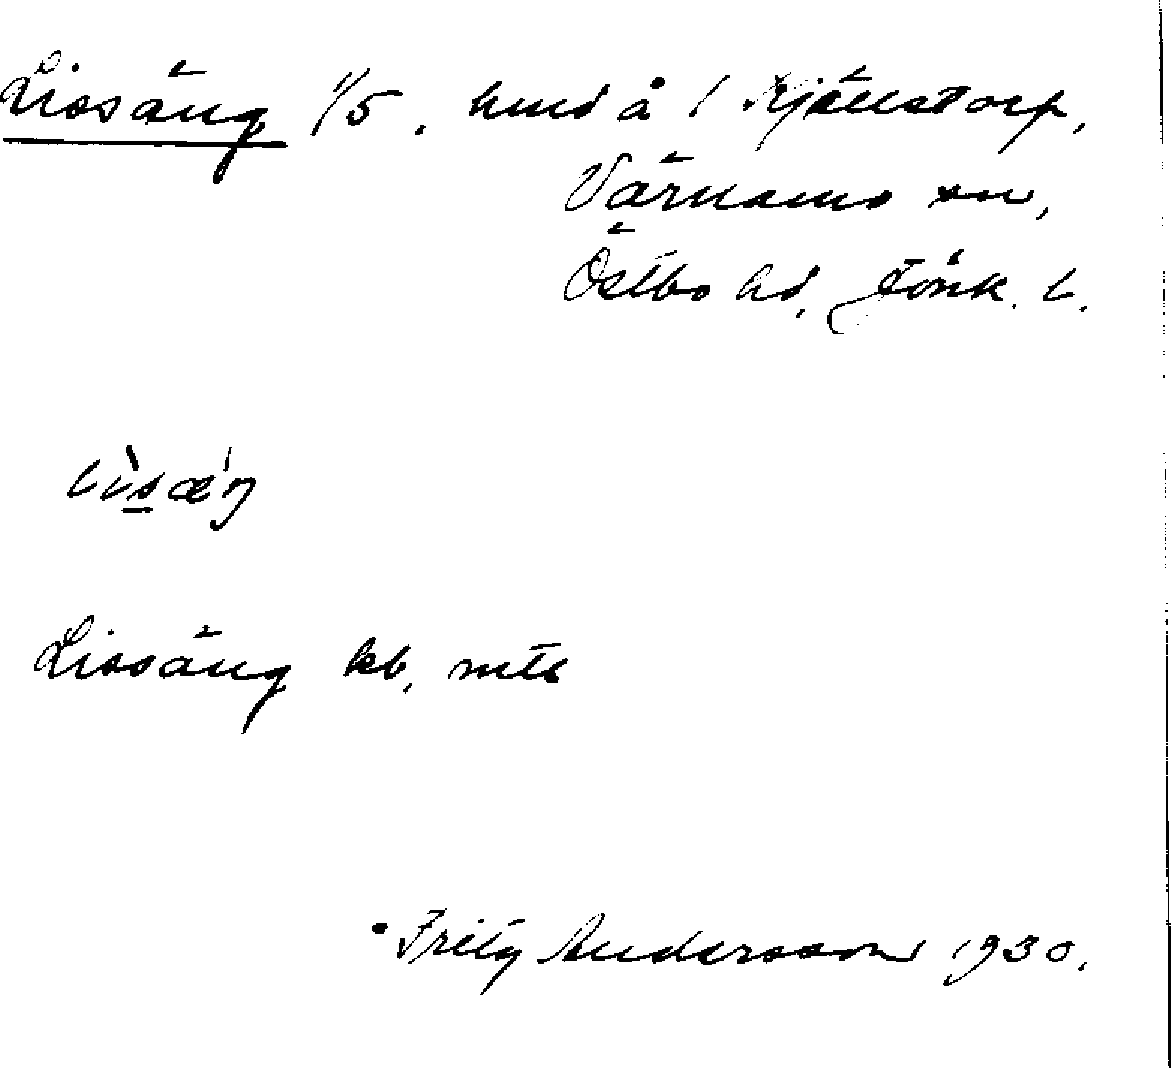 Lissäng 1/5. lund å 1 Kjällstorp,
Värnamo sn,
Östbo hd, Jönk. l.
lìsæ'ŋ
Lissäng kb, mtl
Fritz Andersson 1930.